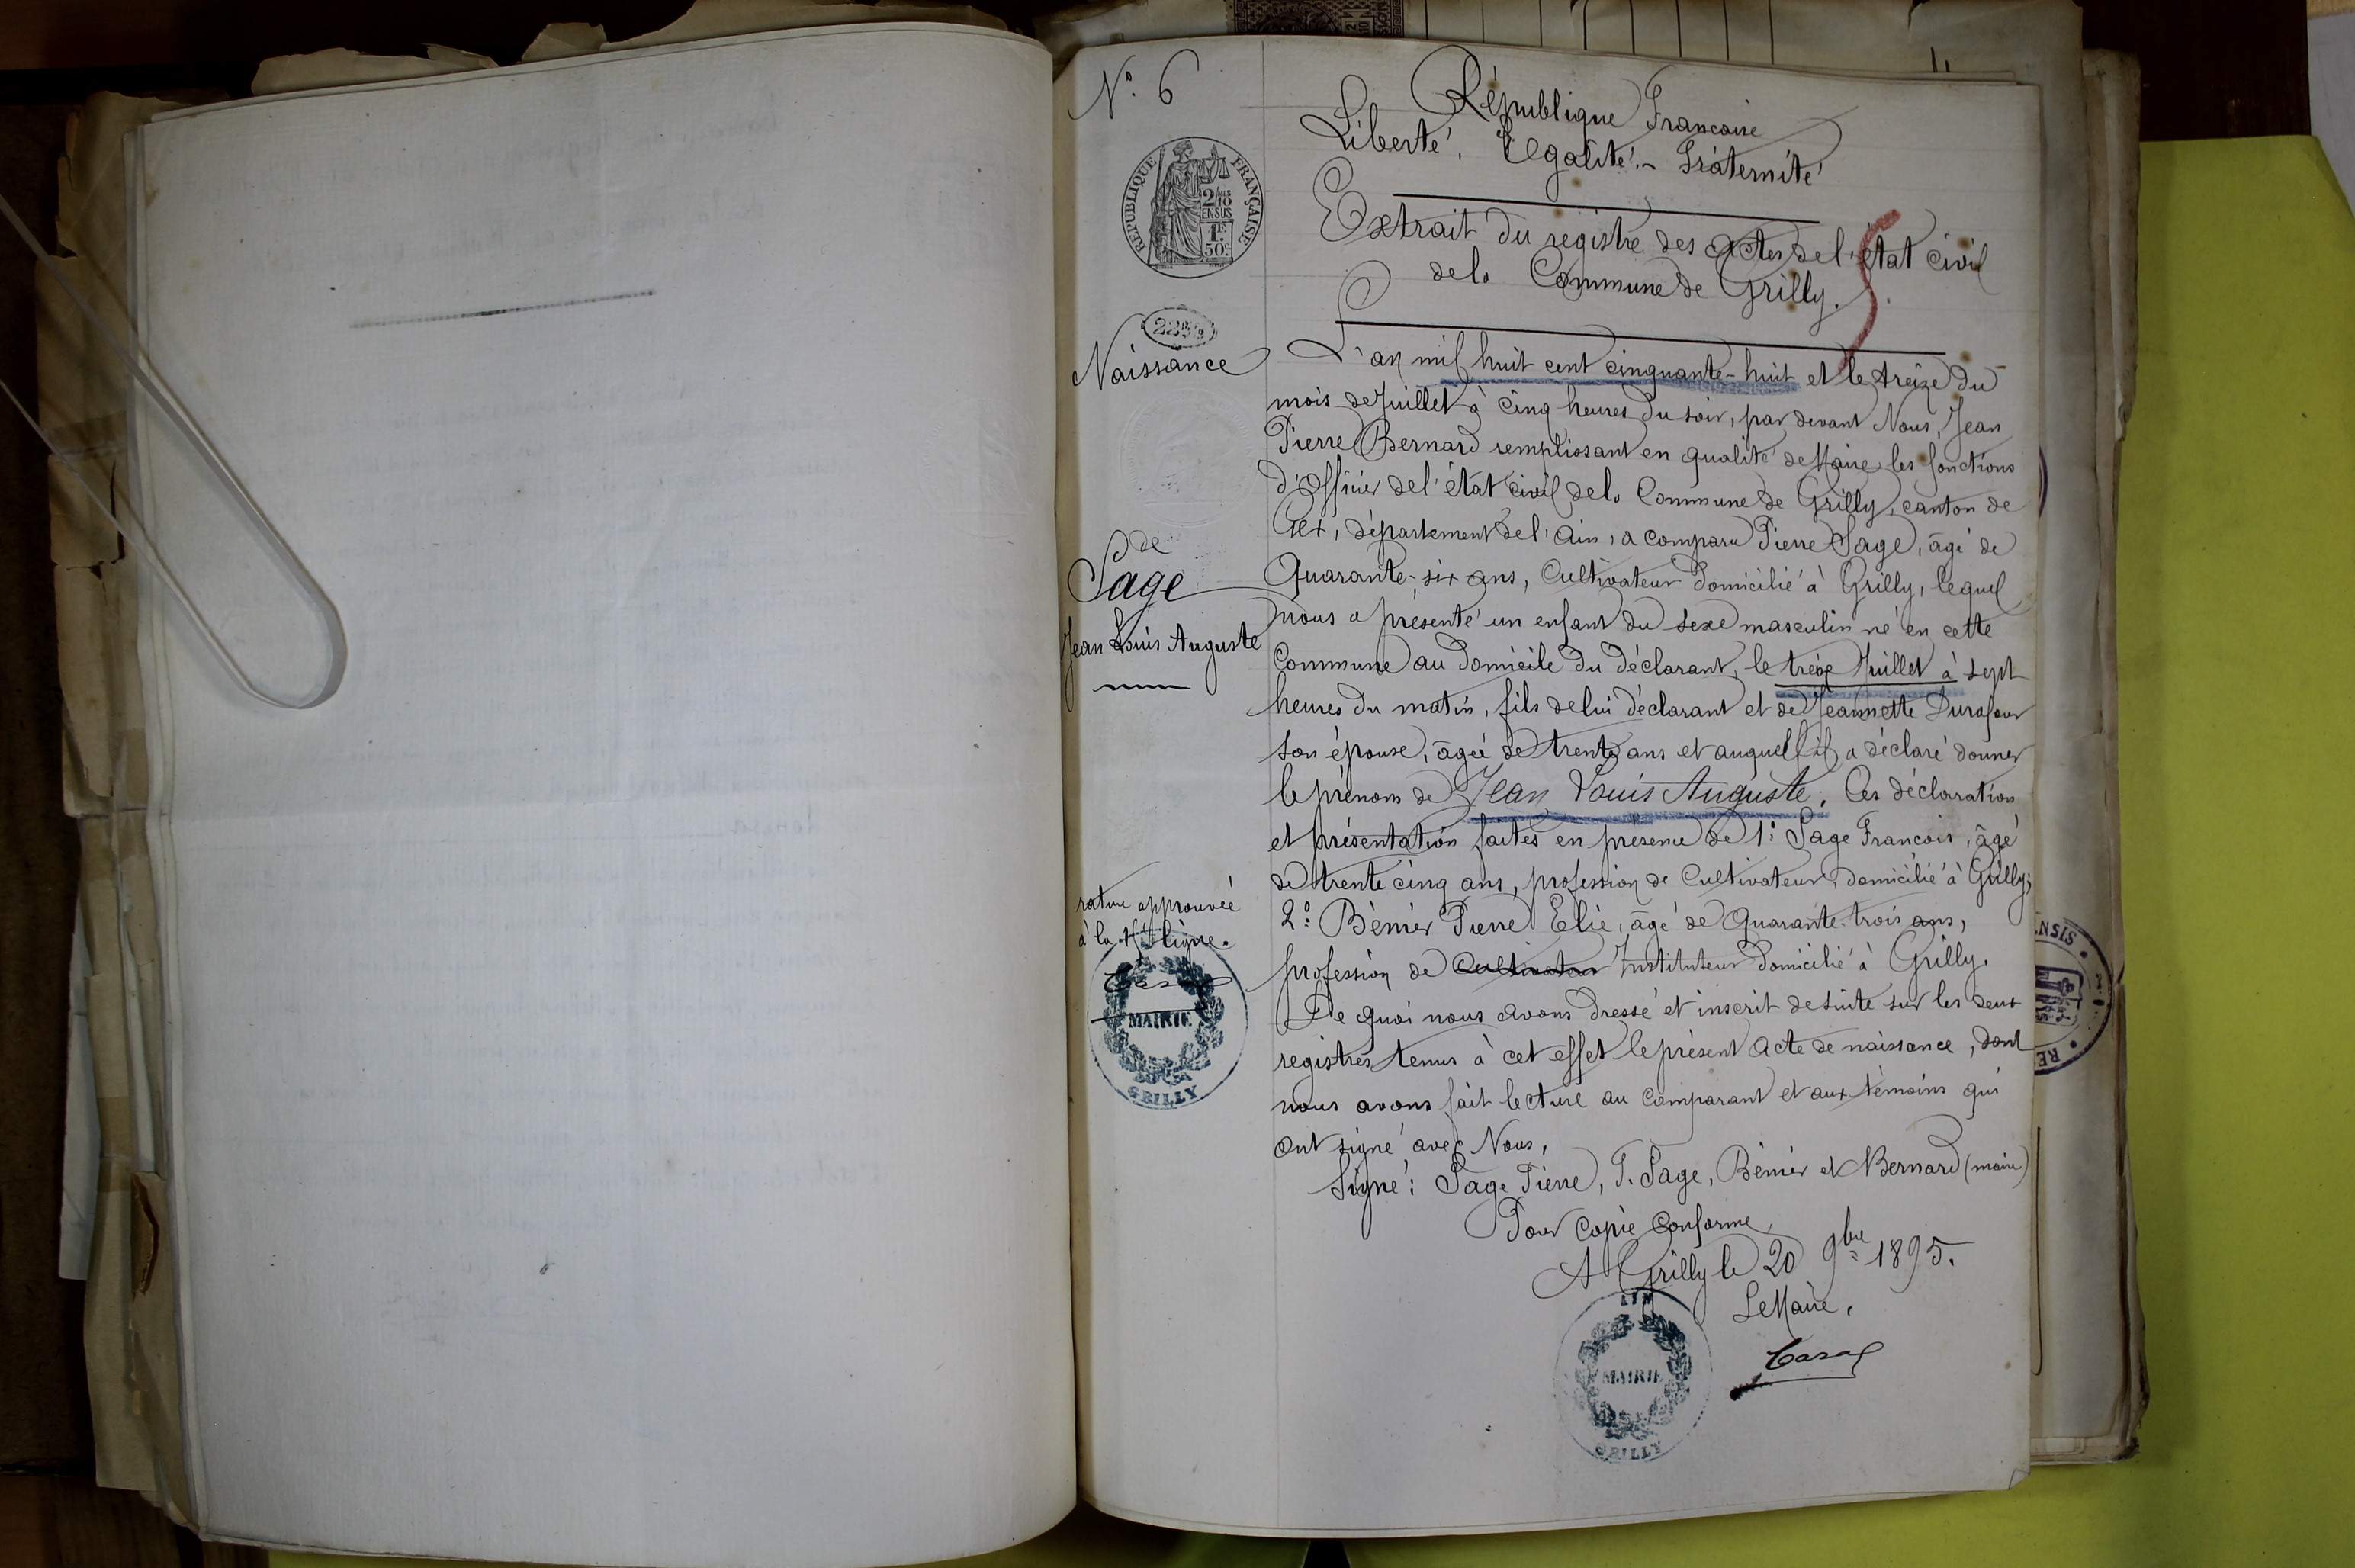 N° 6
République Francaise
Liberté, Egalité - Fraternité
REPUBLIQUE FRANÇAISE
2/10
EN SUS
1F
50c
Extrait du registre des actes de l'état civil
de la Commune de Grilly.
Naissance
de
Sage
Jean Louis Auguste
L'an mil huit cent cinquante-huit et le treize du
mois de Juillet à cinq heures du soir, par devant Nous, Jean
Pierre Bernard remplissant en qualité de Maire les fonctions
d'officier de l'état civil de la Commune de Grilly, canton de
Gex, département de l'Ain, a comparu Pierre Sage, âgé de
Quarante-six ans, Cultivateur domicilié à Grilly, lequel
nous a présenté un enfant du sexe masculin né en cette
Commune au domicile du déclarant, le treize Juillet à sept
heures du matin, fils de lui déclarant et de Jeannette Durafour
son épouse, âgée de trente ans et auquel il a déclaré donner
le prénom de Jean Louis Auguste. Ces déclaration
et présentation faites en présence de 1° Sage Francois, âgé
de trente cinq ans, profession de Cultivateur, domicilié à Grilly;
2° Bénier Pierre Elie, âgé de Quarante-trois ans,
profession de Cultivateur Instituteur domicilié à Grilly.
De quoi nous avons dressé et inscrit de suite sur les deux
registres tenus à cet effet le présent acte de naissance, dont
nous avons fait lecture au comparant et aux témoins qui
ont signé avec Nous,
Signé: Sage Pierre, F. Sage, Bénier et Bernard (maire)
rature approuvée
à la ligne.
MAIRIE
GRILLY
Pour copie conforme
A Grilly le 20 9bre 1895.
Le Maire,
AIN
MAIRIE
GRILLY
ENSIS